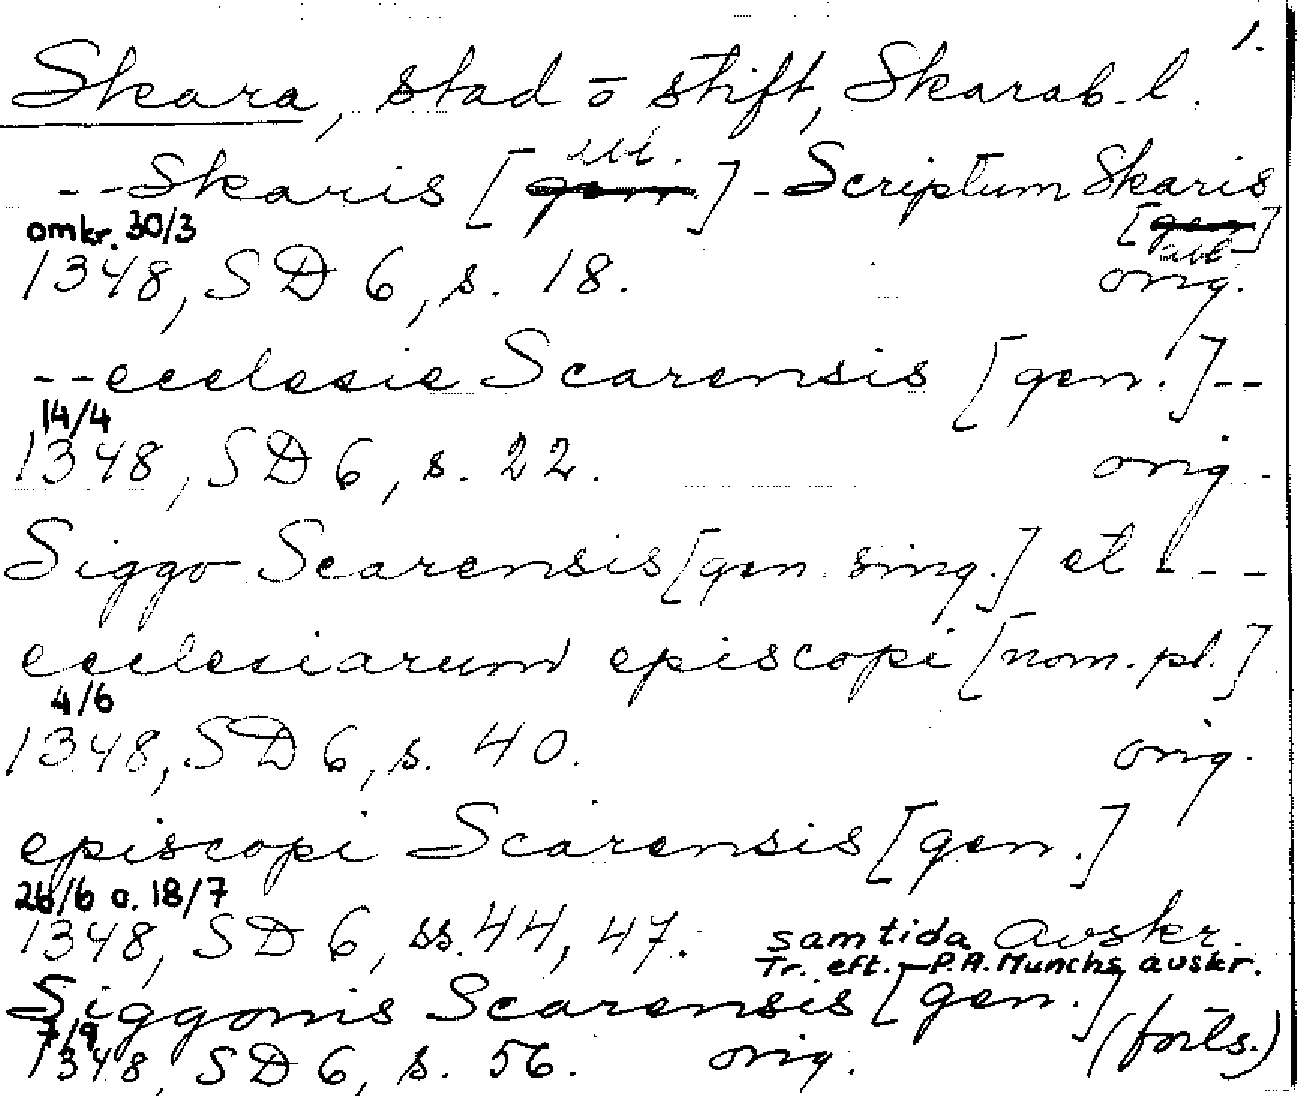 1.
Skara, stad o stift, Skarab. l.
abl.
--Skaris [gen.] - Scriptum Skaris
omkr. 30/3 [gen]
abl
1348, SD 6, s. 18. orig.
--ecclesie Scarensis [gen.]--
14/4
1348, SD 6, s. 22. orig.
Siggo Scarensis [gen. sing.] et ---
ecclesiarum episcopi [nom. pl.]
4/6
1348, SD 6, s. 40. orig.
episcopi Scarensis [gen.]
26/6 o. 18/7
1348, SD 6, ss. 44, 47. samtida avskr.
Tr. eft. P.A. Munchs avskr.
Siggonis Scarensis [gen.]
7/9 (forts.)
1348, SD 6, s. 56. orig.